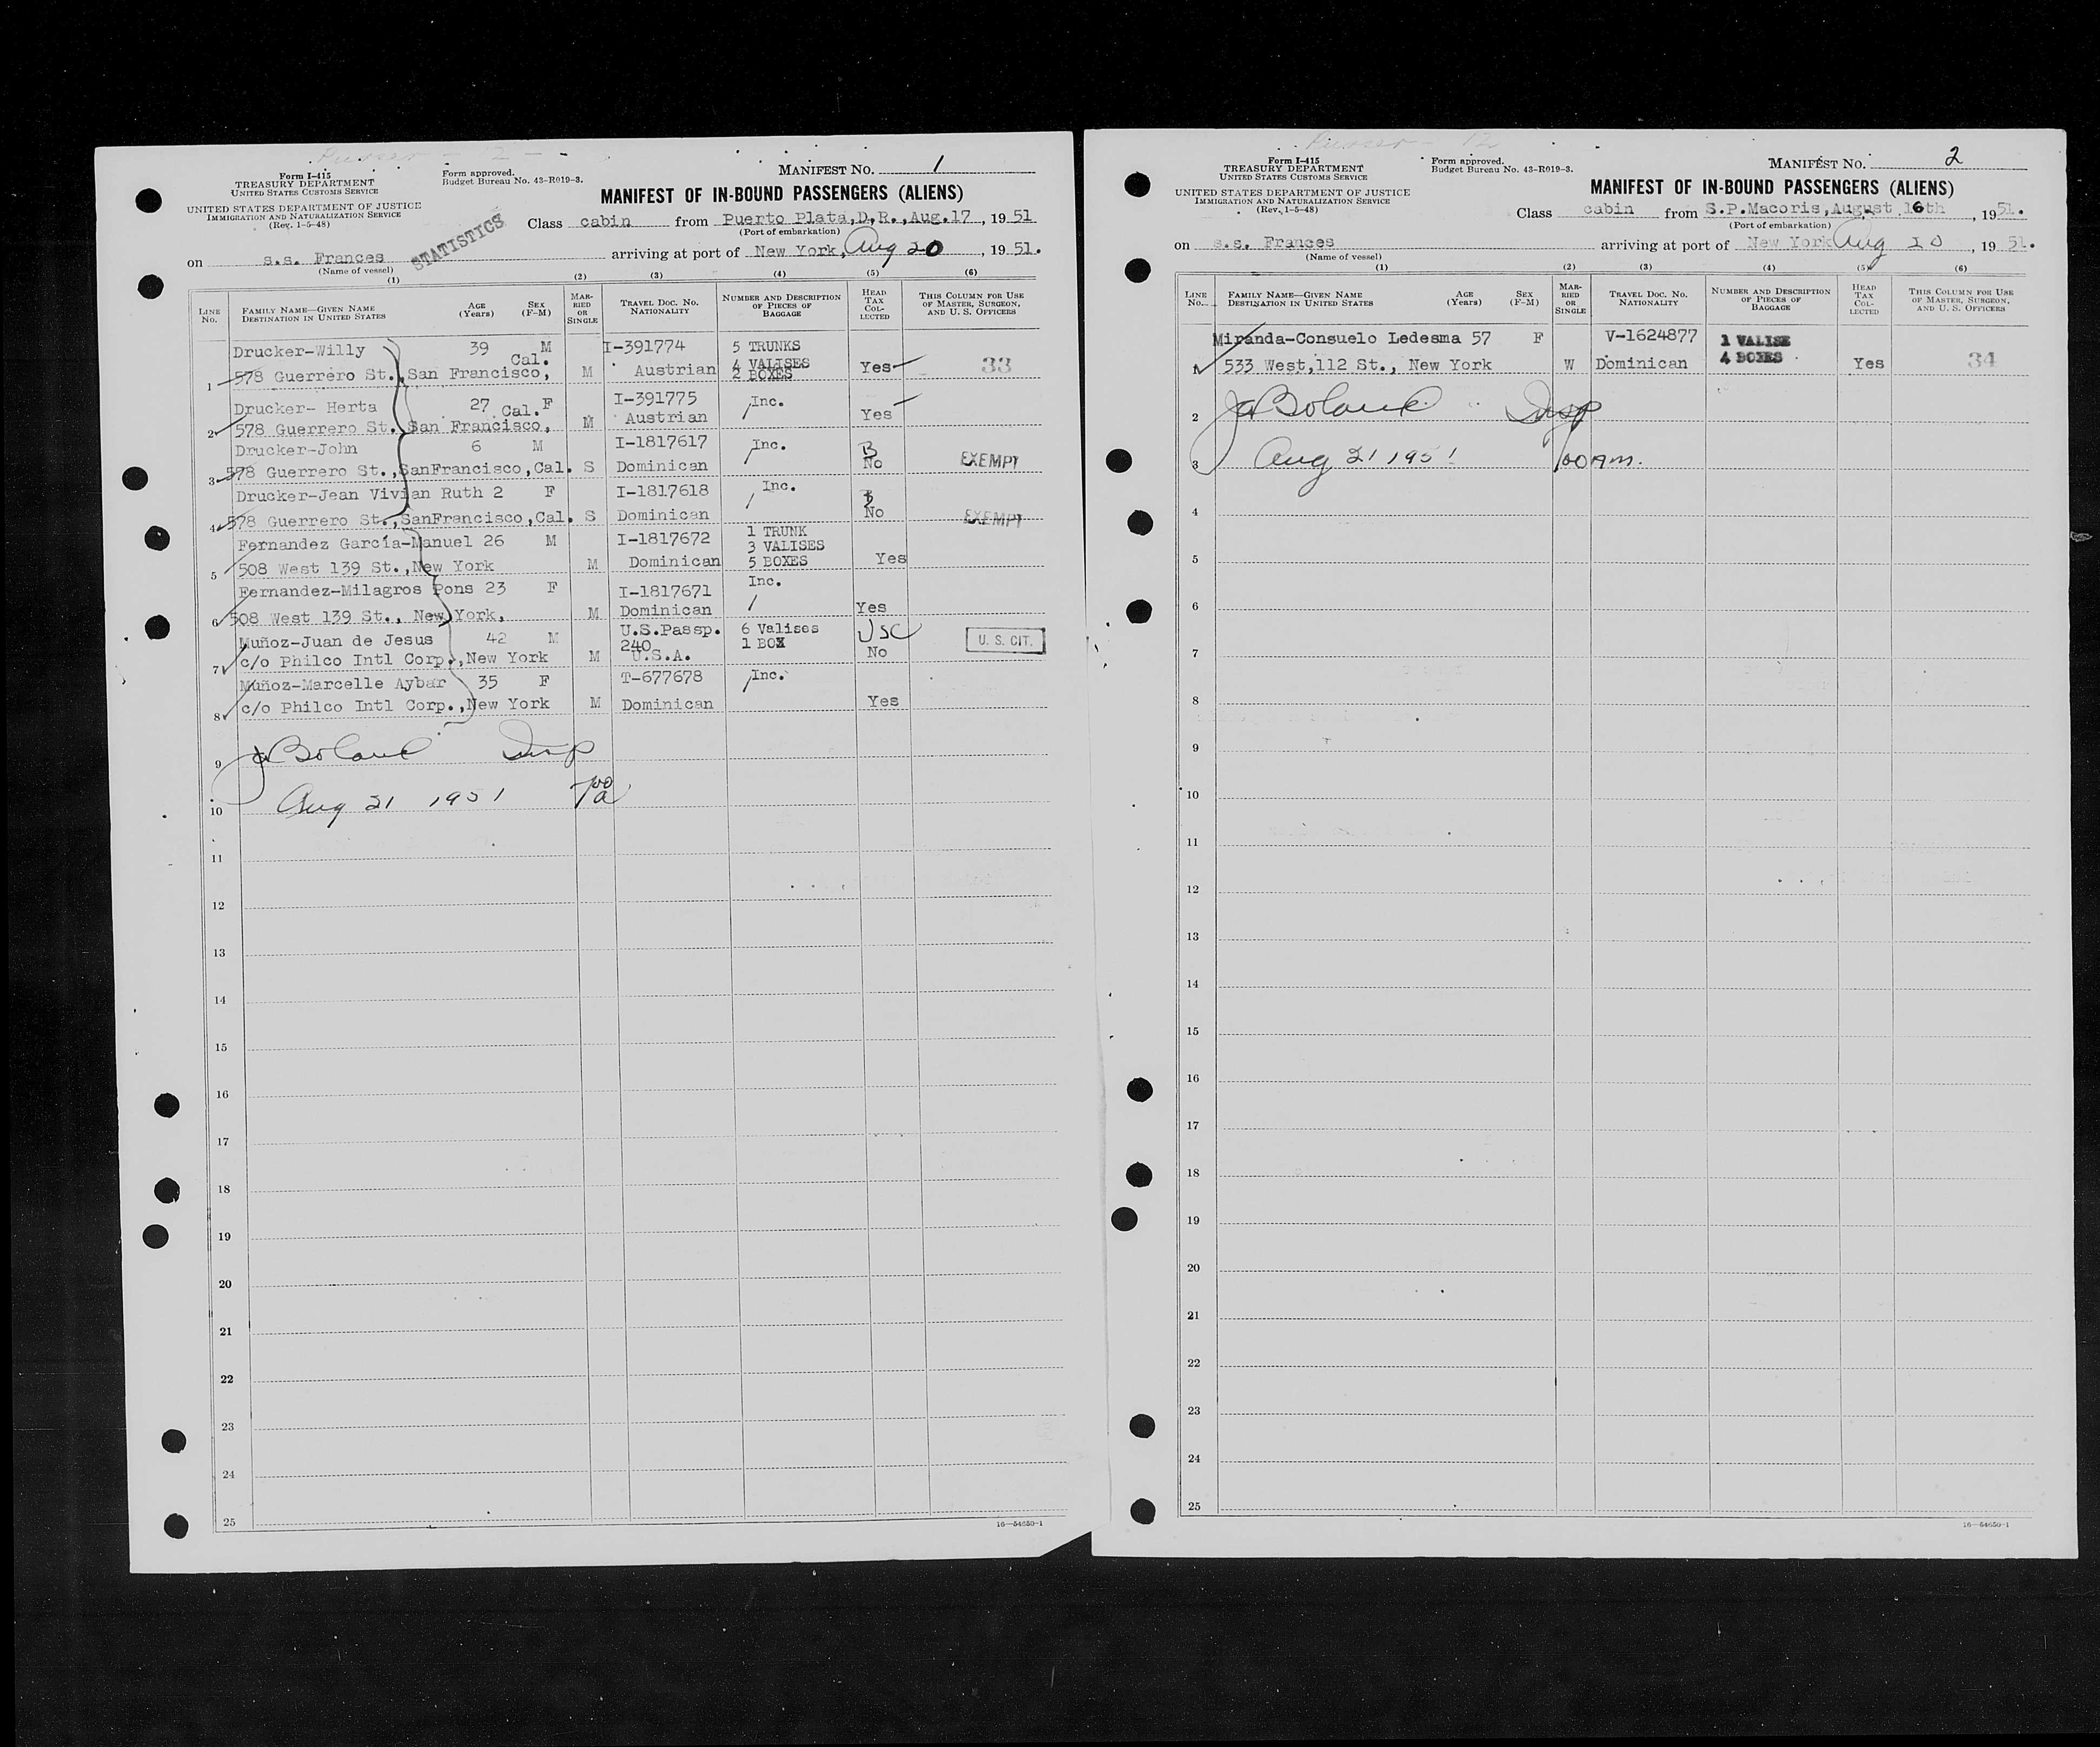 Form I-415
TREASURY DEPARTMENT
UNITED STATES CUSTOMS SERVICE
UNITED STATES DEPARTMENT OF JUSTICE
IMMIGRATION AND NATURALIZATION SERVICE
(Rev. 1-5-48)
Form approved.
Budget Bureau No. 43-R019-3.
MANIFEST NO. 1
MANIFEST OF IN-BOUND PASSENGERS (ALIENS)
STATISTICS
Class cabin from Puerto Plata,D.R.,Aug.17, 1951
(Port of embarkation)
on s.s. Frances arriving at port of New York, Aug 20, 1951.
(Name of vessel)
(1) (2) (3) (4) (5) (6)
LINE No. FAMILY NAME—GIVEN NAME DESTINATION IN UNITED STATES AGE (Years) SEX (F-M) MARRIED OR SINGLE TRAVEL DOC. NO. NATIONALITY NUMBER AND DESCRIPTION OF PIECES OF BAGGAGE HEAD TAX COLLECTED THIS COLUMN FOR USE OF MASTER, SURGEON, AND U. S. OFFICERS
Drucker-Willy 39 M I-391774 5 TRUNKS
1 578 Guerrero St.,San Francisco, Cal. M Austrian 4 VALISES 2 BOXES Yes 33
Drucker- Herta 27 F I-391775 Inc.
2 578 Guerrero St.,San Francisco, Cal. M Austrian Yes
Drucker-John 6 M I-1817617 Inc. B
3 578 Guerrero St.,SanFrancisco,Cal. S Dominican No EXEMPT
Drucker-Jean Vivian Ruth 2 F I-1817618 Inc. B
4 578 Guerrero St.,SanFrancisco,Cal. S Dominican No EXEMPT
Fernandez García-Manuel 26 M I-1817672 1 TRUNK 3 VALISES
5 508 West 139 St.,New York M Dominican 5 BOXES Yes
Fernandez-Milagros Pons 23 F I-1817671 Inc.
6 508 West 139 St., New York, M Dominican Yes
Muñoz-Juan de Jesus 42 M U.S.Passp. 240 6 Valises 1 BOX USC U. S. CIT.
7 c/o Philco Intl Corp.,New York M U.S.A. No
Muñoz-Marcelle Aybar 35 F T-677678 Inc.
8 c/o Philco Intl Corp.,New York M Dominican Yes
9 J Boland Insp
10 Aug 21 1951 7 00 a
11
12
13
14
15
16
17
18
19
20
21
22
23
24
25
16—54650-1
Form I-415
TREASURY DEPARTMENT
UNITED STATES CUSTOMS SERVICE
UNITED STATES DEPARTMENT OF JUSTICE
IMMIGRATION AND NATURALIZATION SERVICE
(Rev. 1-5-48)
Form approved.
Budget Bureau No. 43-R019-3.
MANIFEST NO. 2
MANIFEST OF IN-BOUND PASSENGERS (ALIENS)
Class cabin from S.P.Macoris,August 16th, 1951.
(Port of embarkation)
on s.s. Frances arriving at port of New York Aug 20, 1951.
(Name of vessel)
(1) (2) (3) (4) (5) (6)
LINE No. FAMILY NAME—GIVEN NAME DESTINATION IN UNITED STATES AGE (Years) SEX (F-M) MARRIED OR SINGLE TRAVEL DOC. NO. NATIONALITY NUMBER AND DESCRIPTION OF PIECES OF BAGGAGE HEAD TAX COLLECTED THIS COLUMN FOR USE OF MASTER, SURGEON, AND U. S. OFFICERS
Miranda-Consuelo Ledesma 57 F V-1624877 1 VALISE
1 533 West,112 St., New York W Dominican 4 BOXES Yes 34
2 J Boland Insp
3 Aug 21 1951 7 00 AM.
4
5
6
7
8
9
10
11
12
13
14
15
16
17
18
19
20
21
22
23
24
25
16—54650-1